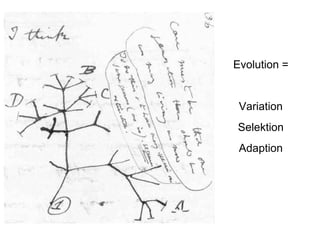 I think
36
Case must be that one
generation then should be
as many living as now
To do this & to have many species in
same genus (as is) requires
extinction
B
D
C
A
1
Evolution =
Variation
Selektion
Adaption